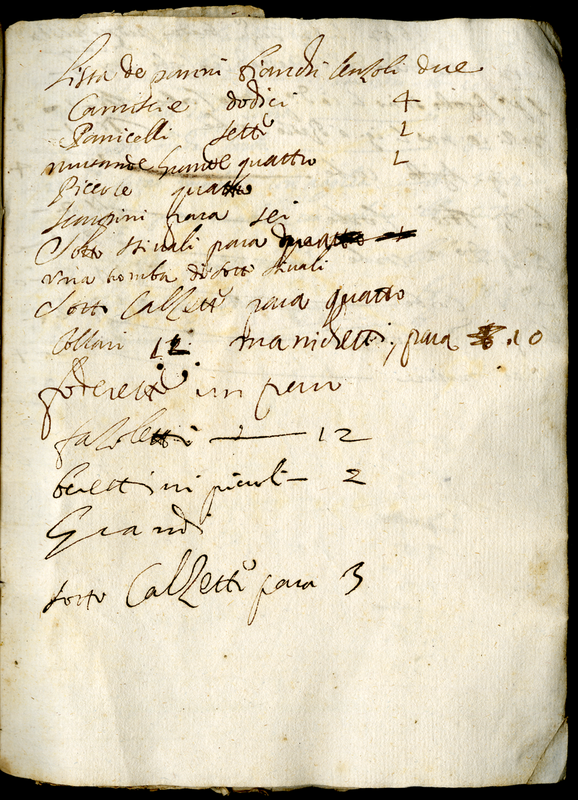 Lista de panni bianchi lenzoli due
Camiscie dodici 4
Panicelli setti 1
mutande grande quattro 1
Piccole quatto
scarpini para sei
Sotto stivali para
una bomba di sotto stivali
Sotto Calzetti para quatto
Collari 12 manichetti, para 10
foderette un paro
fazoletti — 12
berettini picioli — 2
Grandi
sotto Calzetti para 3